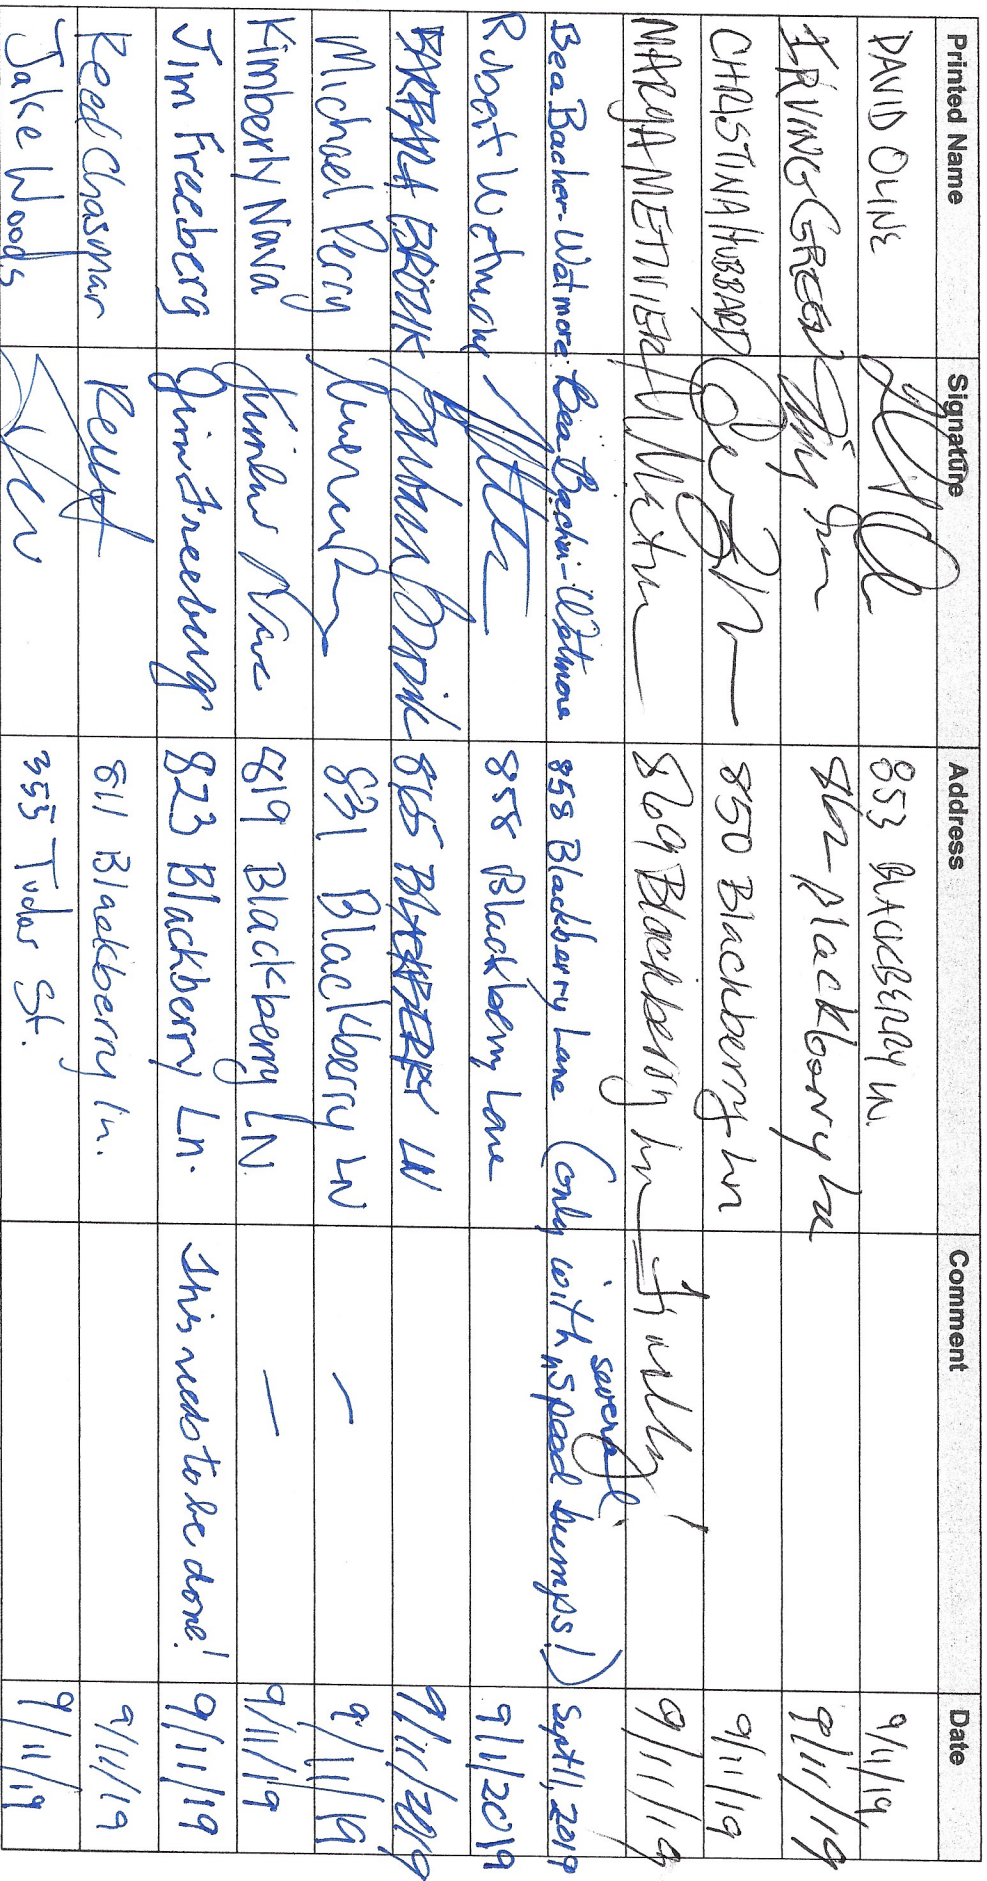 Printed Name Signature Address Comment Date
DAVID OLINE 853 BLACKBERRY LN. 9/11/19
IRVING GREEN 862 Blackberry Ln 9/11/19
CHRISTINA HUBBARD 850 Blackberry Ln 9/11/19
MARYA METIVIER 869 Blackberry Ln Finally! 9/11/19
Bea Bacher-Wetmore Bea Bacher-Wetmore 858 Blackberry Lane (only with several speed bumps!) Sept 11, 2019
Robert Wetmore 858 Blackberry Lane 9/11/2019
BARBARA BROZIK Barbara Brozik 865 BLACKBERRY LN 9/11/2019
Michael Perry 831 Blackberry LN – 9/11/19
Kimberly Nava Kimber Nava 819 Blackberry LN. — 9/11/19
Jim Freeberg Jim Freeberg 823 Blackberry Ln. This needs to be done! 9/11/19
Reed Chasmar 811 Blackberry ln. 9/11/19
Jake Woods 355 Tudor St. 9/11/19